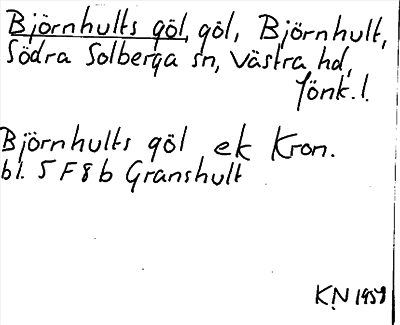 Björnhults göl, göl, Björnhult,
Södra Solberga sn, Västra hd,
Jönk. l.
Björnhults göl ek Kron.
bl. 5 F 8 b Granshult
KN 1959